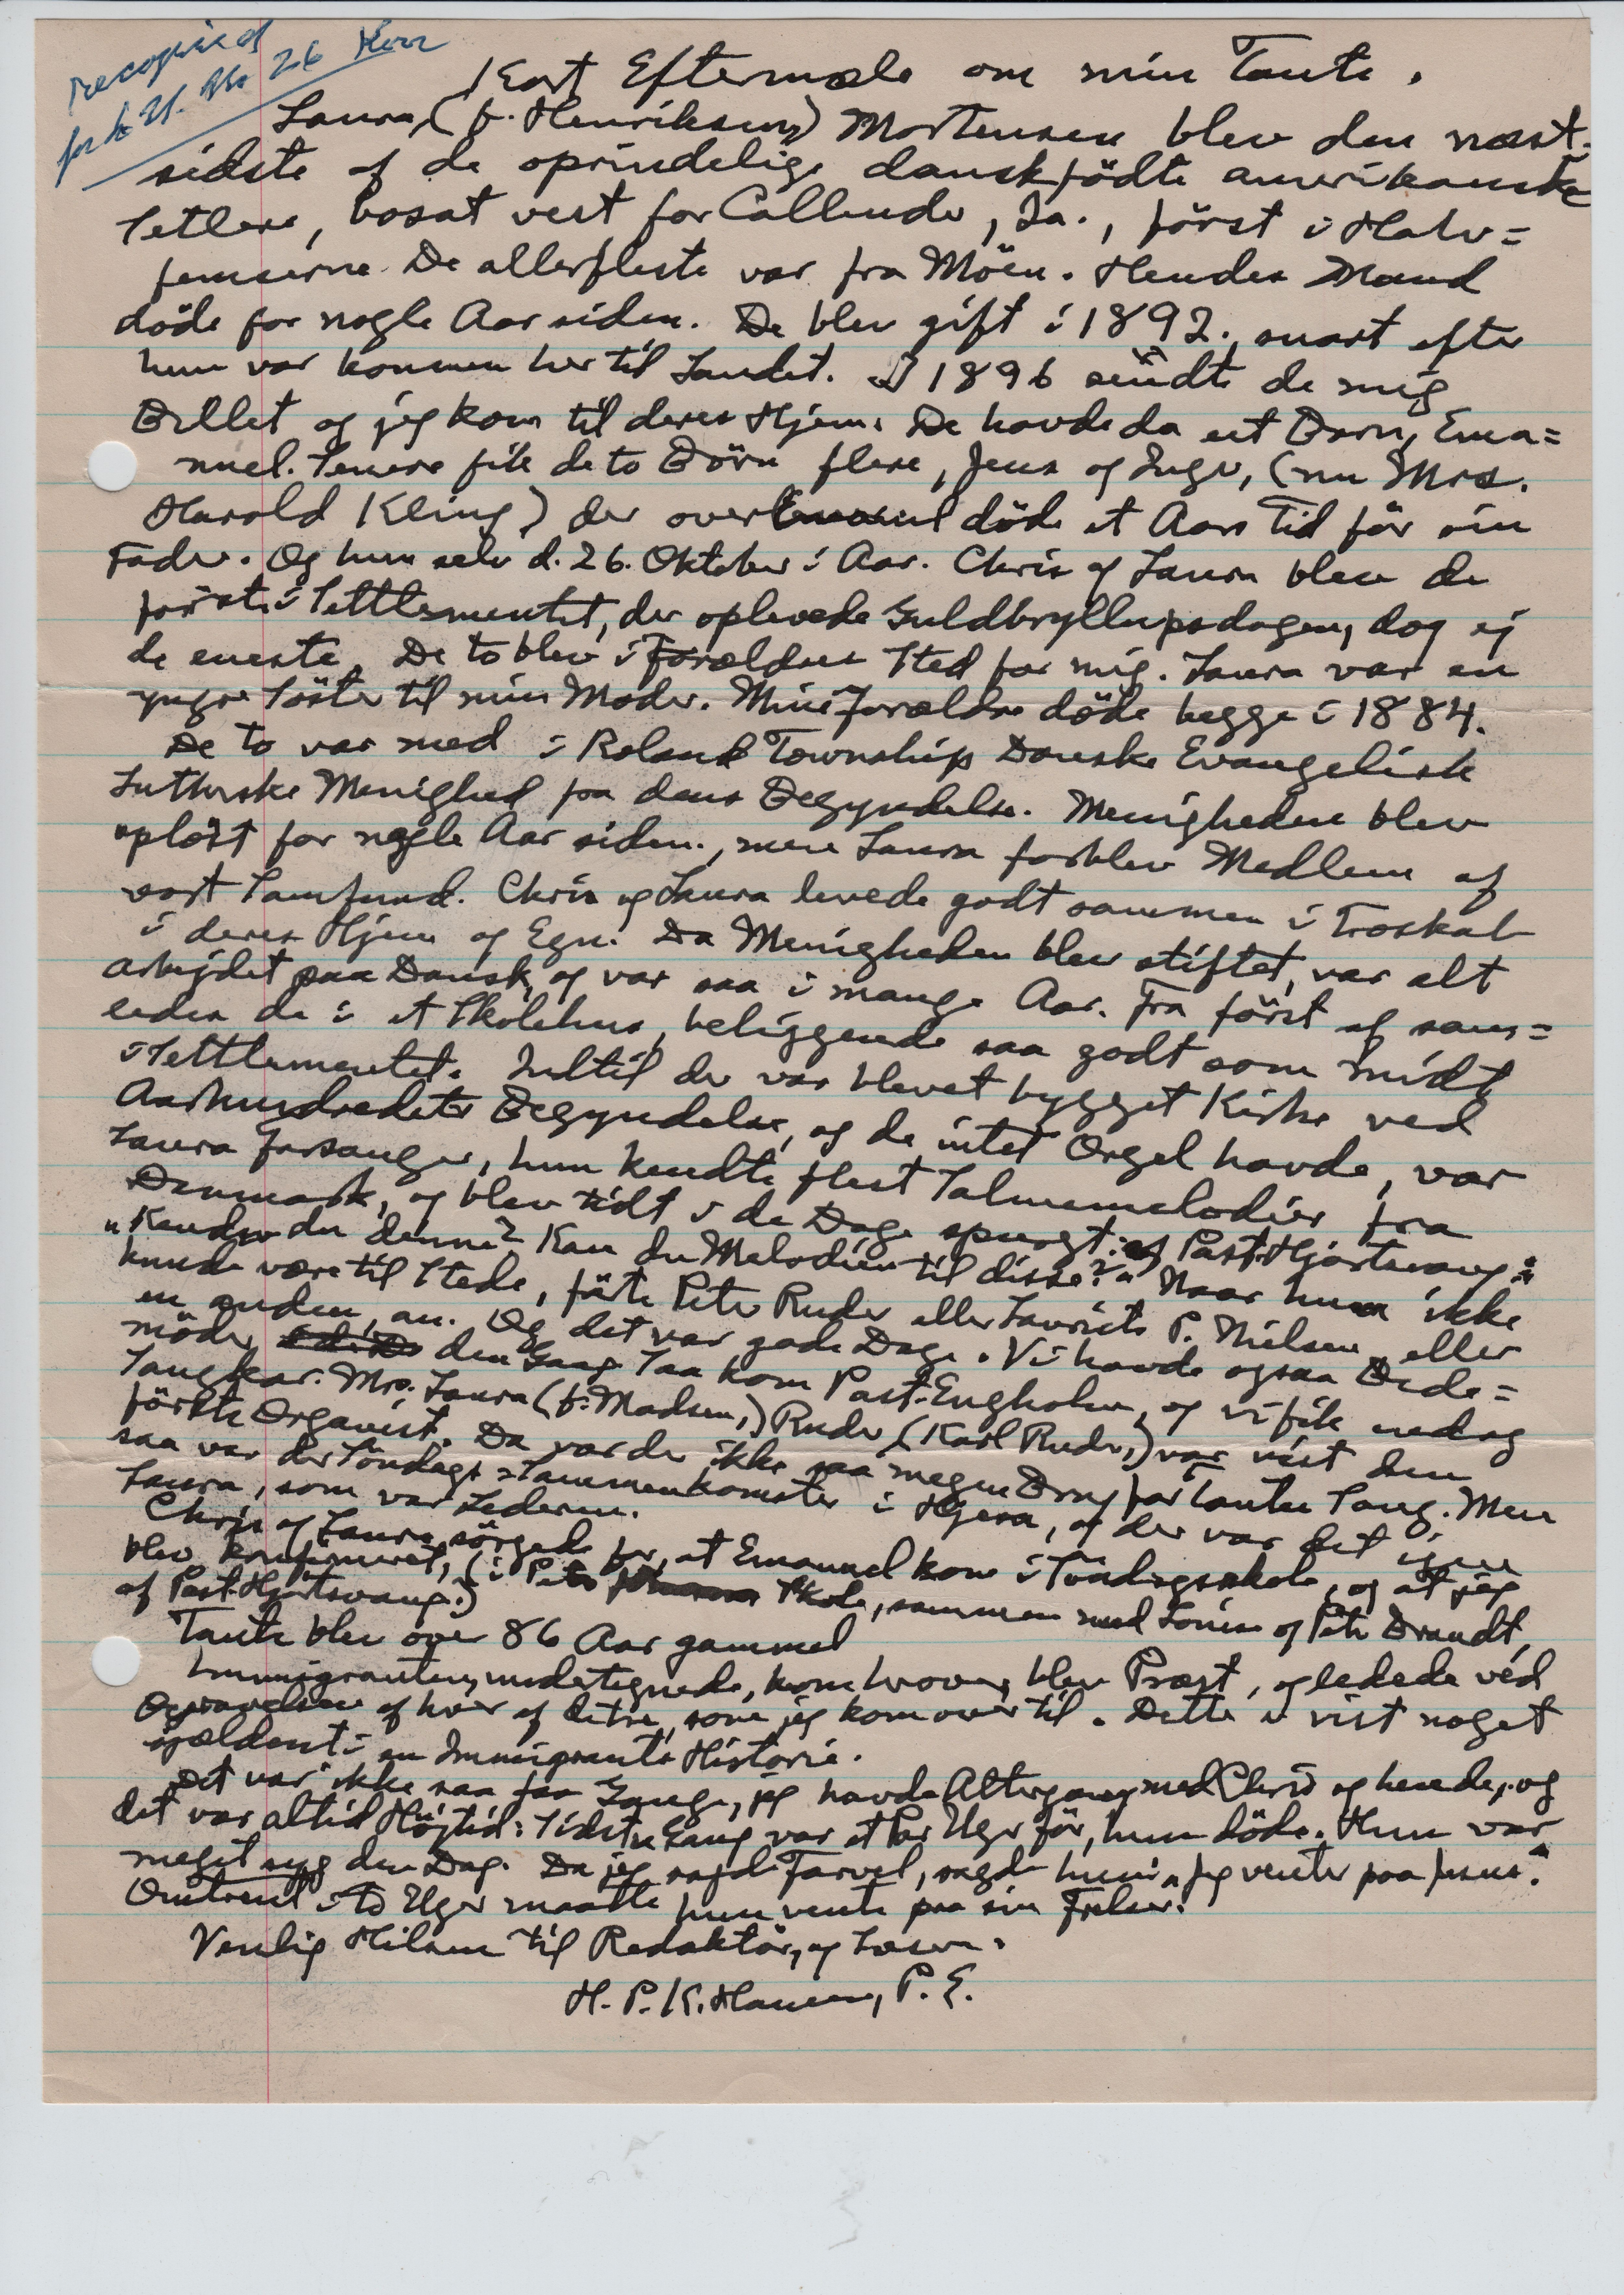 recopied
for 26 Nov
Kort Eftermæle om min Tante.
Laura, (f. Henriksen) Mortensen blev den næst-
sidste af de oprindelige danskfödte amerikanske
Setlere, bosat vest for Callender, Ia., först i Halv=
femserne. De allerfleste var fra Möen. Hendes Mand
döde for nogle Aar siden. De blev gift i 1892., snart efter
hun var kommen her til Landet. I 1896 sendte de mig
Billet og jeg kom til deres Hjem. De havde da eet Barn, Ema=
nuel. Senere fik de to Börn flere, Jens og Inge, (nu Mrs.
Harold Kling) der over Emanuel döde et Aars Tid för sin
Fader. Og hun selv d. 26. Oktober i Aar. Chris og Laura blev de
förste i Settlementet, der oplevede Guldbryllupsdagen, dog ej
de eneste. De to blev i Forældres Sted for mig. Laura var en
yngre Söster til min Moder. Mine Forældre döde begge i 1884.
De to var med i Roland Township Danske Evangelisk
Lutherske Menighed fra dens Begyndelse. Menigheden blev
oplöst for nogle Aar siden., men Laura forblev Medlem af
vort Samfund. Chris og Laura levede godt sammen i Troskab
i deres Hjem og Egn. Da Menigheden blev stiftet, var alt
Arbejdet paa Dansk, og var saa i mange Aar. Fra först af sam=
ledes de i et Skolehus, beliggende saa godt som midt
i Settlementet. Indtil der var blevet bygget Kirke ved
Aarhundredets Begyndelse, og de intet Orgel havde, var
Laura forsanger, hun kendte flest Salmemelodier fra
Danmark, og blev tidt i de Dage spurgt: af Past. Hjortsvang:
"Kender du denne? Kan du Melodien til disse?" Naar hun ikke
kunde være til Stede, förte Peter Ruder eller Laurits P. Nielsen, eller
en anden, an. Og det var gode Dage. Vi havde ogsaa Bede=
möder den Gang. Saa kom Past. Engholm, og vi fik endog
Sangkor. Mrs. Laura (f. Madsen,) Ruder (Karl Ruder,) var vist den
förste Organist. Da var der ikke saa megen Brug for Tantes Sang. Men
saa var der Söndags Sammenkomster i Hjem, og der var det igen
Laura, som var Lederen.
Chris og Laura sörgede for, at Emanuel kom i Söndagsskole, og at jeg
blev konfirmeret, (i Skole, sammen med Louise og Peter Brandt,
af Past. Hjortsvang.)
Tante blev over 86 Aar gammel
Immigranten, undertegnede, kom herover, blev Præst, og ledede ved
Begravelsen af hver af de tre, som jeg kom over til. Dette er vist noget
sjældent i en Immigrants Historie.
Det var ikke saa faa Gange, jeg havde Altergang med Chris og hende, og
det var altid Höjtid: Sidste Gang var et Par Uger för, hun döde. Hun var
meget syg den Dag. Da jeg sagde Farvel, sagde hun: "Jeg venter paa Jesus."
Omtrent to Uger maatte hun vente paa sin Frelser.
Venlig Hilsen til Redaktör, og Læsere.
H. P. K. Hansen, P. E.